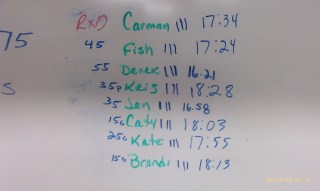 75
S
RXD Carman III 17:34
45 Fish III 17:24
55 Derek III 16:21
35# Kris III 18:28
35 Jen III 16:58
15# Caty III 18:03
25# Kate III 17:55
15# Brandi III 18:13